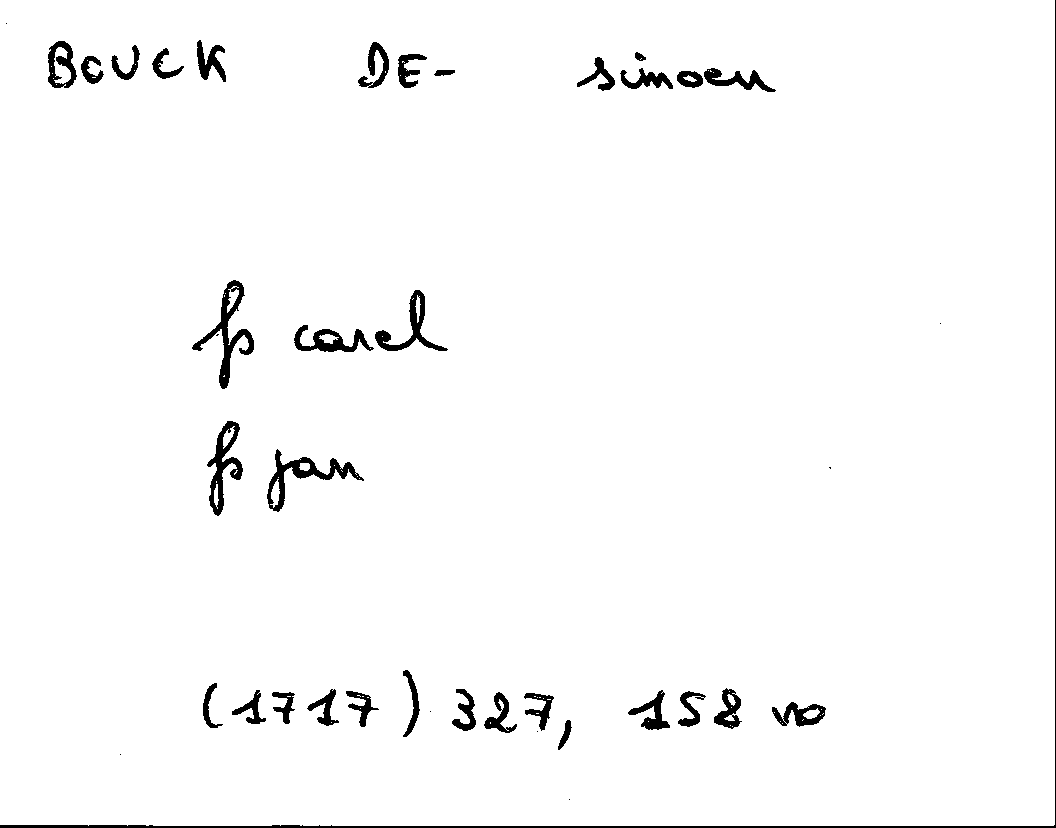 BOUCK DE- simoen
fs carel
fs jan
(1717) 327, 158 vo